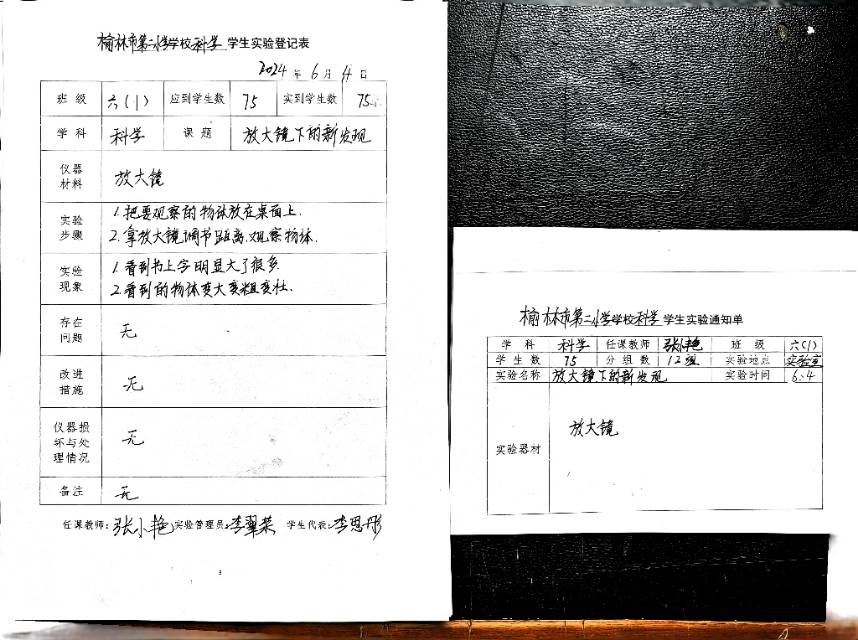 榆林市第二小学学校科学学生实验登记表
2024年6月4日
班级 六(1) 应到学生数 75 实到学生数 75
学科 科学 课题 放大镜下的新发现
仪器材料 放大镜
实验步骤 1.把要观察的物体放在桌面上.
2.拿放大镜调节距离,观察物体.
实验现象 1.看到书上字明显大了很多.
2.看到的物体变大变粗变壮.
存在问题 无
改进措施 无
仪器损坏与处理情况 无
备注 无
任课教师:张小艳 实验管理员:李翠荣 学生代表:李思彤
榆林市第二小学学校科学学生实验通知单
学科 科学 任课教师 张小艳 班级 六(1)
学生数 75 分组数 12组 实验地点 实验室
实验名称 放大镜下的新发现 实验时间 6.4
实验器材 放大镜